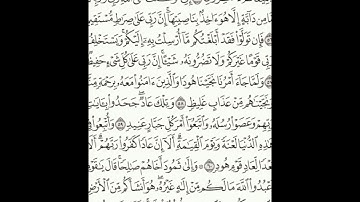 مِن دَآبَّةٍ إِلَّا هُوَ ءَاخِذٌۢ بِنَاصِيَتِهَآ ۚ إِنَّ رَبِّى عَلَىٰ صِرَٰطٍ مُّسْتَقِي
فَإِن تَوَلَّوْا۟ فَقَدْ أَبْلَغْتُكُم مَّآ أُرْسِلْتُ بِهِۦٓ إِلَيْكُمْ ۚ وَيَسْتَخْلِفُ
رَبِّى قَوْمًا غَيْرَكُمْ وَلَا تَضُرُّونَهُۥ شَيْـًٔا ۚ إِنَّ رَبِّى عَلَىٰ كُلِّ شَىْءٍ حَفِيظٌ
وَلَمَّا جَآءَ أَمْرُنَا نَجَّيْنَا هُودًا وَٱلَّذِينَ ءَامَنُوا۟ مَعَهُۥ بِرَحْمَةٍ
وَنَجَّيْنَٰهُم مِّنْ عَذَابٍ غَلِيظٍ ٥٨ وَتِلْكَ عَادٌ ۖ جَحَدُوا۟ بِـَٔايَٰتِ
رَبِّهِمْ وَعَصَوْا۟ رُسُلَهُۥ وَٱتَّبَعُوٓا۟ أَمْرَ كُلِّ جَبَّارٍ عَنِيدٍ ٥٩ وَأُتْبِعُوا۟
هَٰذِهِ ٱلدُّنْيَا لَعْنَةً وَيَوْمَ ٱلْقِيَٰمَةِ ۗ أَلَآ إِنَّ عَادًا كَفَرُوا۟ رَبَّهُمْ ۗ
بُعْدًا لِّعَادٍ قَوْمِ هُودٍ ٦٠ ۞ وَإِلَىٰ ثَمُودَ أَخَاهُمْ صَٰلِحًا ۚ قَالَ يَٰقَوْمِ
ٱعْبُدُوا۟ ٱللَّهَ مَا لَكُم مِّنْ إِلَٰهٍ غَيْرُهُۥ ۖ هُوَ أَنشَأَكُم مِّنَ ٱلْأَرْضِ